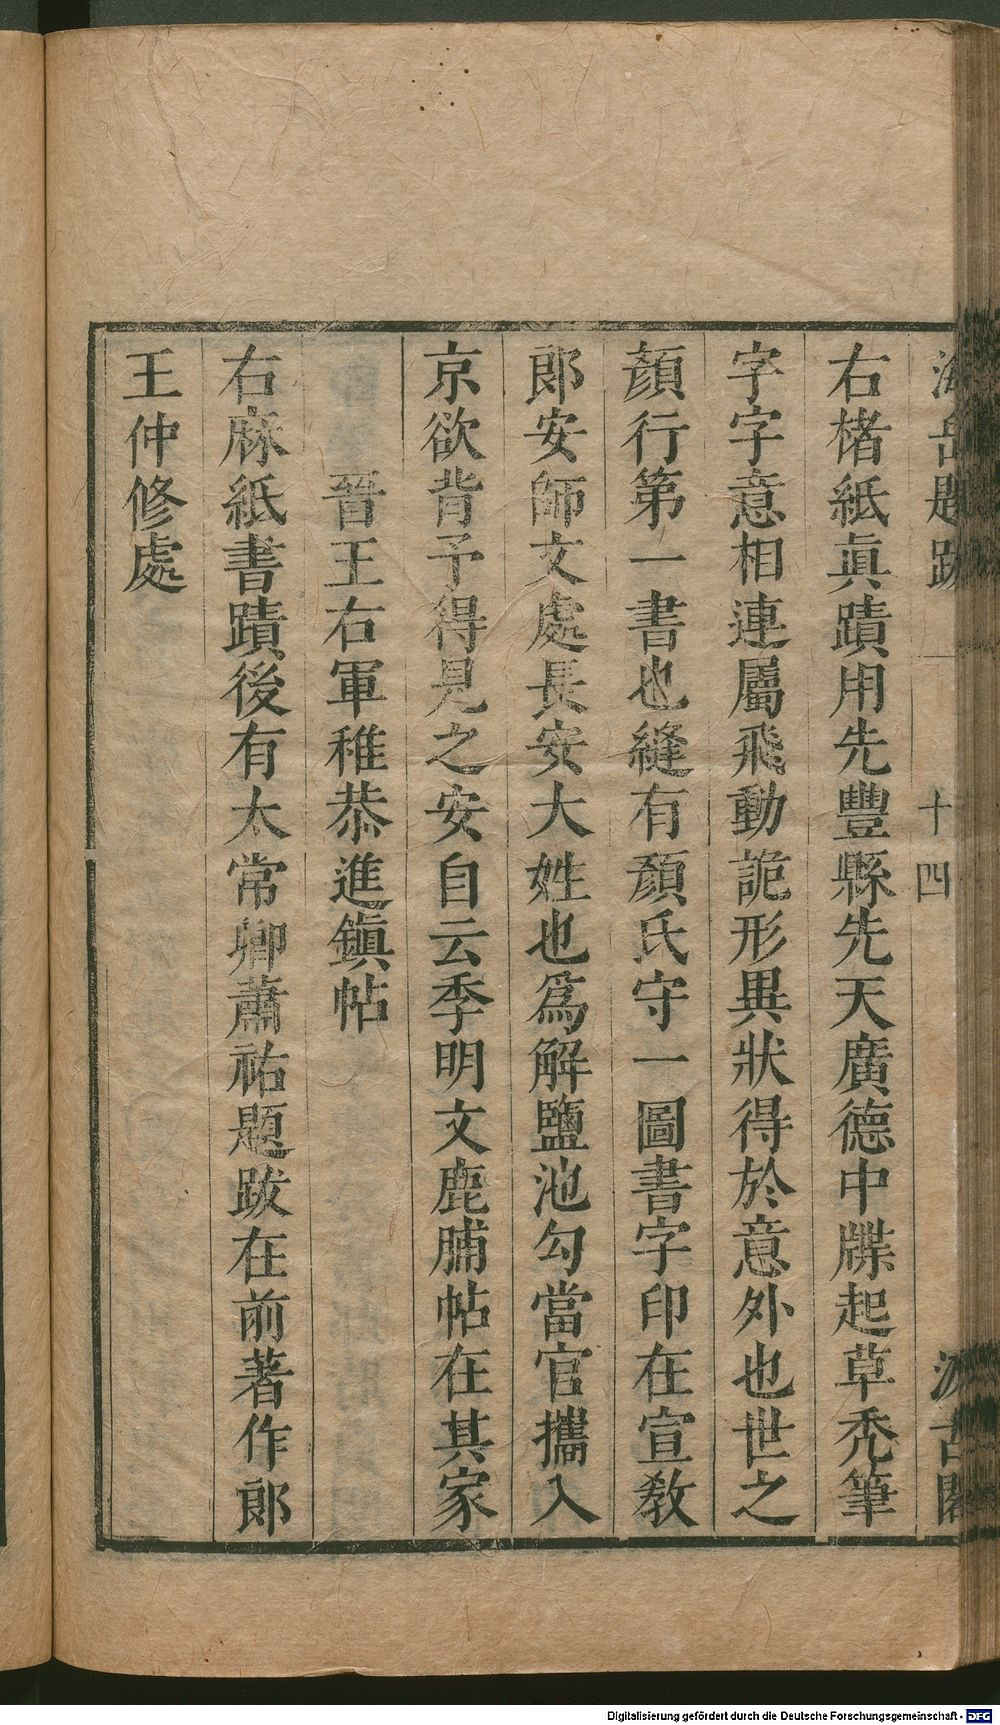 海岳題跋 一 十四 汲古閣
右楮紙眞蹟用先豐縣先天廣德中牒起草禿筆
字字意相連屬飛動詭形異狀得於意外也世之
顏行第一書也縫有顏氏守一圖書字印在宣教
郎安師文處長安大姓也爲解鹽池勾當官攜入
京欲背予得見之安自云季明文鹿脯帖在其家
晉王右軍稚恭進鎭帖
右麻紙書蹟後有太常卿蕭祐題跋在前著作郎
王仲修處
Digitalisierung gefördert durch die Deutsche Forschungsgemeinschaft - DFG